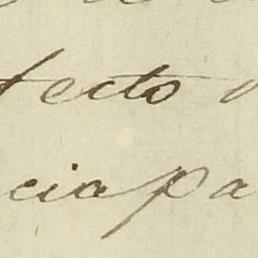 tecto
cia pa